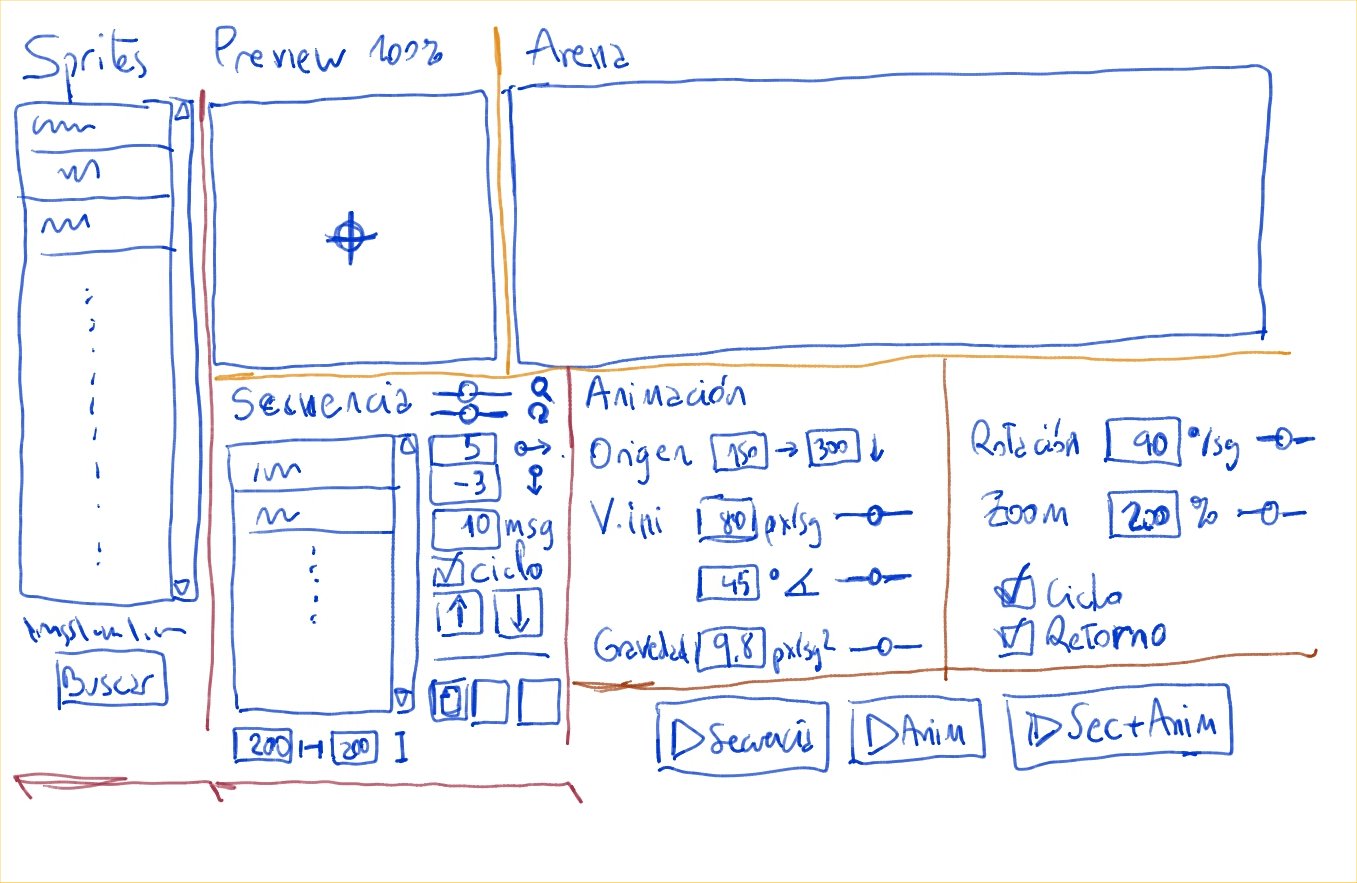 Sprites
Preview 100%
Arena
Buscar
Secuencia
5
-3
10 msg
Ciclo
200
200
Animación
Origen 150 → 300 ↓
V.ini 80 px/sg
45 °
Gravedad 9.8 px/sg²
Rotación 90 °/sg
Zoom 200 %
Ciclo
Retorno
Secuencia
Anim
Sec+Anim